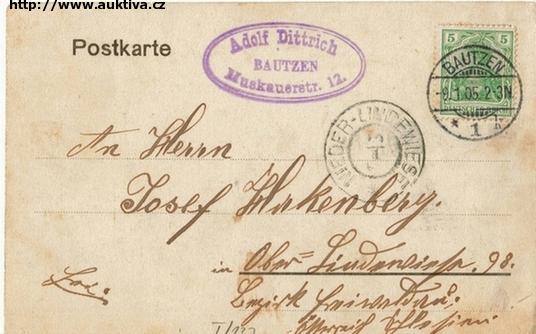 http://www.auktiva.cz
Postkarte
Adolf Dittrich
BAUTZEN
Muskauerstr. 12.
5 5
BAUTZEN
-9.1.05.2-3N
* 1
NIEDER-LINDEWIESE
An Herrn
Josef
in Ober-Lindewiese 98.
Bezirk Freiwaldau
Österreich Schlesien